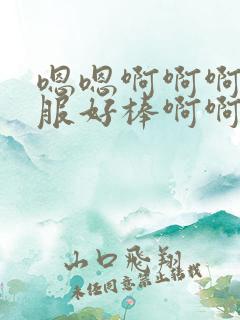 嗯嗯啊啊啊
服好棒啊啊
山口飛翔
未经同意禁止转载